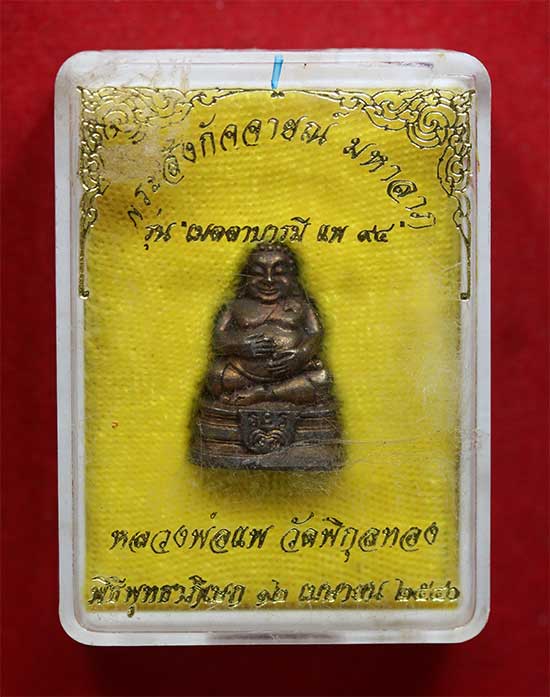 พระสังกัจจายณ์ มหาลาภ
รุ่น "เมตตาบารมี แพ ๙๔"
หลวงพ่อแพ วัดพิกุลทอง
พิธีพุทธาภิเษก ๑๒ เมษายน ๒๕๔๑